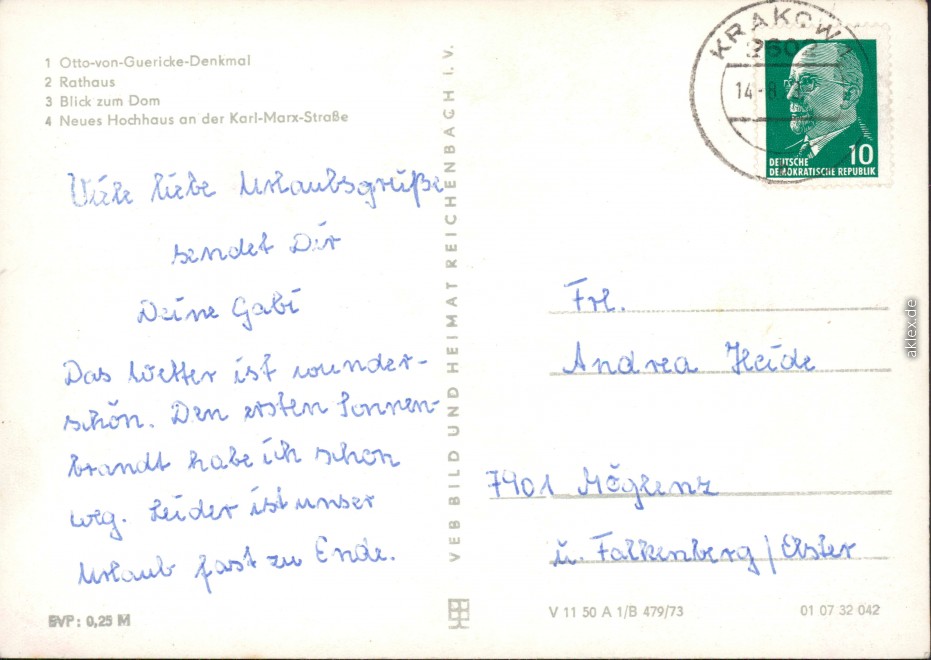 1 Otto-von-Guericke-Denkmal
2 Rathaus
3 Blick zum Dom
4 Neues Hochhaus an der Karl-Marx-Straße
Viele liebe Urlaubsgrüße
sendet Dir
Deine Gabi
Das Wetter ist wunder-
schön. Den ersten Sonnen-
brandt habe ich schon
weg. Leider ist unser
Urlaub fast zu Ende.
EVP: 0,25 M
VEB BILD UND HEIMAT REICHENBACH I. V.
KRAKOW
2602
14-8.
10
DEUTSCHE
DEMOKRATISCHE REPUBLIK
Frl.
Andrea Heide
7901 Möglenz
ü. Falkenberg/Elster
V 11 50 A 1/B 479/73
01 07 32 042
aklex.de